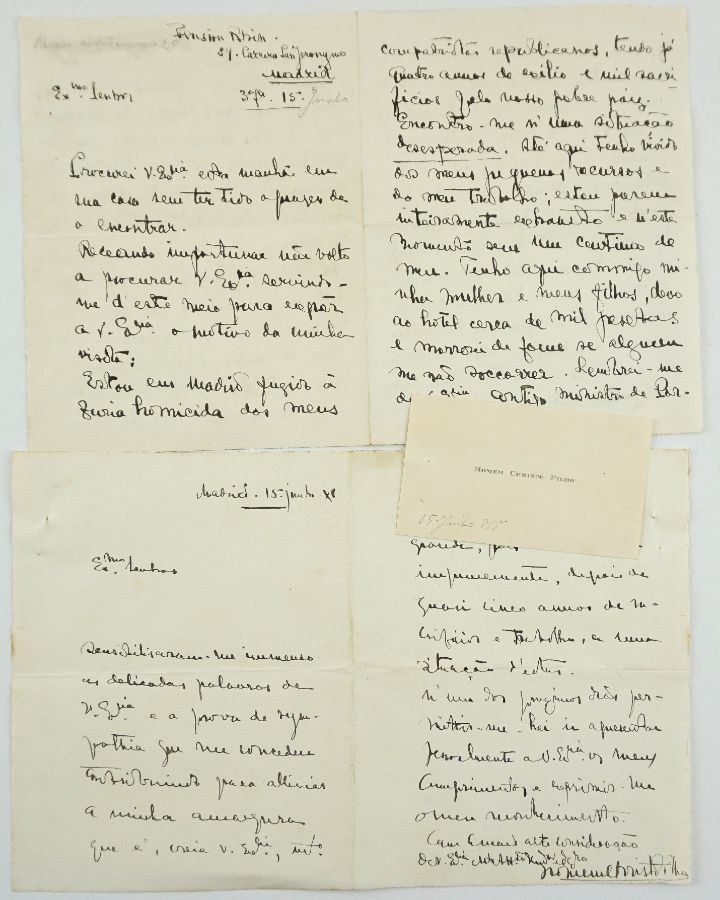 Pension Rhin.
29. Carrera San Jeronymo
Madrid
3ª fª 15 Junho
Exmo Senhor
Procurei V. Exciª esta manhã em
sua casa sem ter tido o prazer de
o encontrar.
Receando importunar não volto
a procurar V. Exciª servindo-
me d'este meio para expôr
a V. Exciª o motivo da minha
visita:
Estou em Madrid fugido á
furia homicida dos meus
compatriotas republicanos, tendo já
quatro annos de exilio e mil sacri
ficios pelo nosso pobre paiz.
Encontro-me n'uma situação
desesperada. Até aqui tenho vivido
dos meus pequenos recursos e
do meu trabalho; estou porem
inteiramente exhausto e n'este
momento sem um centimo de
meu. Tenho aqui commigo mi
nha mulher e meus filhos, devo
ao hotel cerca de mil pesetas
e morrerei de fome se alguem
me não soccorrer. Lembrei-me
antigo ministro de Por-
HOMEM CHRISTO FILHO
15 Junho 915
Madrid. 15. junho
Exmo Senhor
Sensibilisaram-me immenso
as delicadas palavras de
V. Exciª e a prova de sym-
pathia que me concedeu
contribuindo para alliviar
a minha amargura
que é, creia V. Exciª, mto
grande, pois
impunemente, depois de
quasi cinco annos de sa-
crificios e trabalho, a uma
situação d'estas.
N'um dos proximos dias per-
mittir-me-hei ir apresentar
pessoalmente a V. Exciª os meus
cumprimentos e exprimir-lhe
o meu reconhecimento.
Com a mais alta consideração
De V. Exciª
Homem Christo Filho